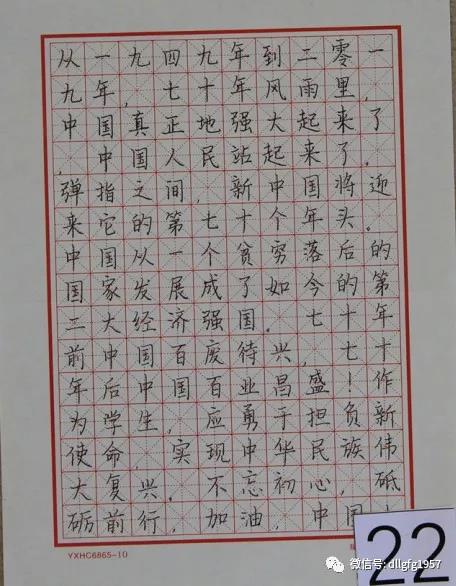 从一九四九年到二零一
九年，七十年风雨里，
中国真正地强大起来了
，中国人民站起来了。
弹指之间，新中国将迎
来它的第七十个年头。
中国从一个贫穷落后的
国家发展成了如今的第
二大经济强国。七十年
前中国百废待兴，七十
年后中国百业昌盛！作
为学生，应勇于担负新
使命，实现中华民族伟
大复兴。不忘初心，砥
砺前行，加油，中国！
YXHC6865-10
22
微信号: dllgfg1957